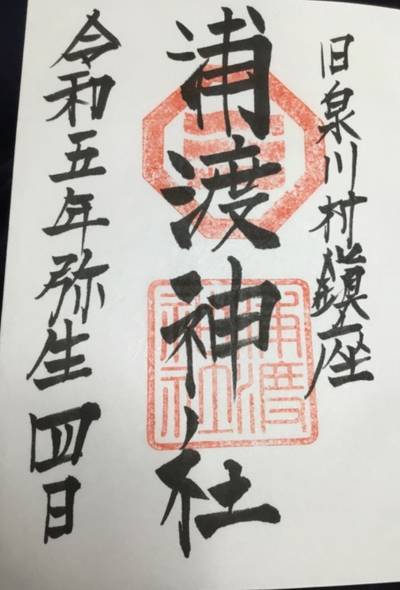 旧泉川村鎮座
浦渡神社
浦渡
神社
令和五年弥生四日